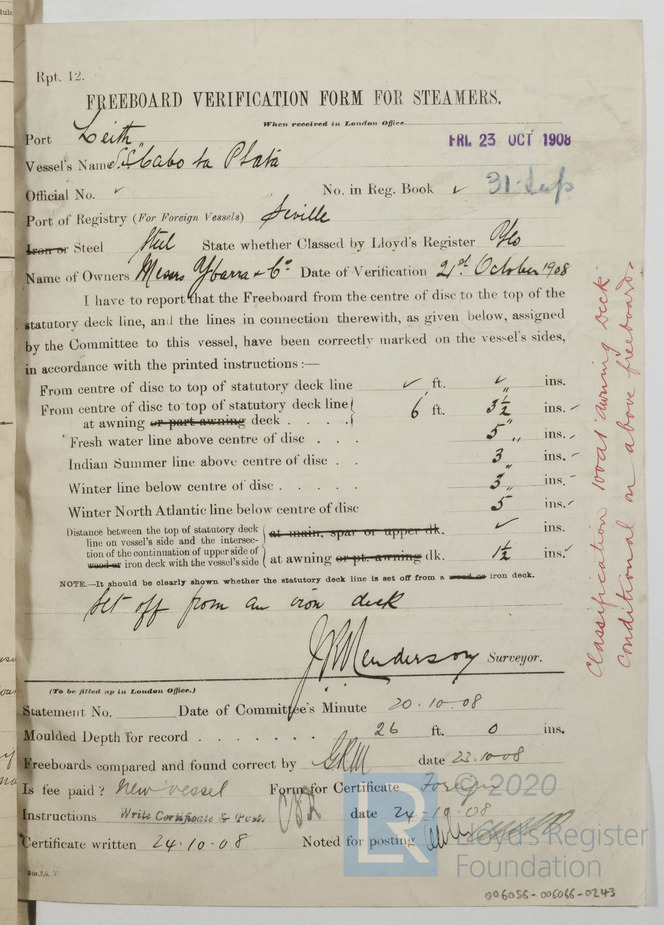 Rpt. 12.
FREEBOARD VERIFICATION FORM FOR STEAMERS.
When received in London Office
Port Leith FRI. 23 OCT 1908
Vessel's Name S.S. "Cabo la Plata
Official No. ✓ No. in Reg. Book ✓ 31 Sup
Port of Registry (For Foreign Vessels) Seville
Iron or Steel Steel State whether Classed by Lloyd's Register Yes
Name of Owners Messrs Ybarra & Co. Date of Verification 21st October 1908
I have to report that the Freeboard from the centre of disc to the top of the
statutory deck line, and the lines in connection therewith, as given below, assigned
by the Committee to this vessel, have been correctly marked on the vessel's sides,
in accordance with the printed instructions :—
From centre of disc to top of statutory deck line ✓ ft. ✓ ins.
From centre of disc to top of statutory deck line
at awning or part awning deck . . . . 6 ft. 3½ ins. ✓
Fresh water line above centre of disc . . . 5 " ins. ✓
Indian Summer line above centre of disc . . 3 ins. ✓
Winter line below centre of disc . . . . . 3 " ins. ✓
Winter North Atlantic line below centre of disc 5 ins. ✓
Distance between the top of statutory deck
line on vessel's side and the intersec-
tion of the continuation of upper side of
wood or iron deck with the vessel's side
at main, spar or upper dk. ✓ ins.
at awning or pt. awning dk. 1½ ins. ✓
NOTE.—It should be clearly shown whether the statutory deck line is set off from a wood or iron deck.
Set off from an iron deck
Henderson Surveyor.
(To be filled up in London Office.)
Statement No. Date of Committee's Minute 20.10.08
Moulded Depth for record . . . . . . . 26 ft. 0 ins.
Freeboards compared and found correct by GRM date 23.10.08
Is fee paid? New vessel Form for Certificate Foreign
Instructions Write Certificate & Post. date 24-10-08
Certificate written 24.10.08 Noted for posting
Classification 100A1 "Awning Deck"
conditional on above freeboards.
© 2020
LR
Lloyd's Register
Foundation
006056-006066-0243